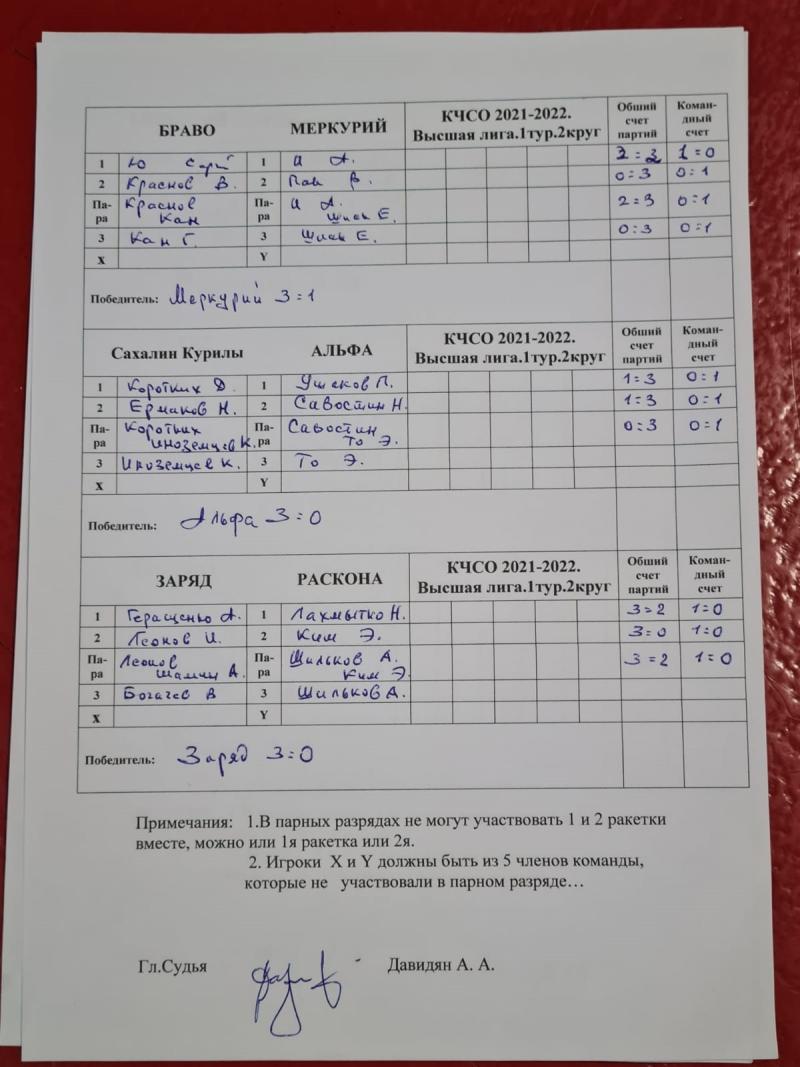 БРАВО МЕРКУРИЙ КЧСО 2021-2022. Высшая лига.1тур.2круг Общий счет партий Коман-дный счет
1 Ю 1 И А. 1=0
2 Краснов В. 2 Пак В. 0=3 0=1
Па-ра Краснов Кан Па-ра И А. Шиян Е. 2=3 0=1
3 Кан Г. 3 Шиян Е. 0=3 0=1
X Y
Победитель: Меркурий 3=1
Сахалин Курилы АЛЬФА КЧСО 2021-2022. Высшая лига.1тур.2круг Общий счет партий Коман-дный счет
1 Коротких Д. 1 Ушаков П. 1=3 0=1
2 Ермаков Н. 2 Савостин Н. 1=3 0=1
Па-ра Коротких Иноземцев К. Па-ра Савостин То Э. 0=3 0=1
3 Иноземцев К. 3 То Э.
X Y
Победитель: Альфа 3=0
ЗАРЯД РАСКОНА КЧСО 2021-2022. Высшая лига.1тур.2круг Общий счет партий Коман-дный счет
1 Геращенко А. 1 Лахмытко Н. 3=2 1=0
2 Леонов И. 2 Ким Э. 3=0 1=0
Па-ра Леонов Шамин А. Па-ра Шильков А. Ким Э. 3=2 1=0
3 Богачев В 3 Шильков А.
X Y
Победитель: Заряд 3=0
Примечания: 1.В парных разрядах не могут участвовать 1 и 2 ракетки
вместе, можно или 1я ракетка или 2я.
2. Игроки X и Y должны быть из 5 членов команды,
которые не участвовали в парном разряде…
Гл.Судья Давидян А. А.